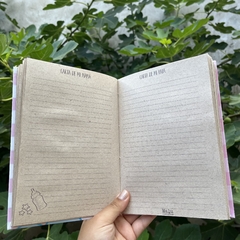 CARTA DE MI MAMÁ
CARTA DE MI PAPÁ